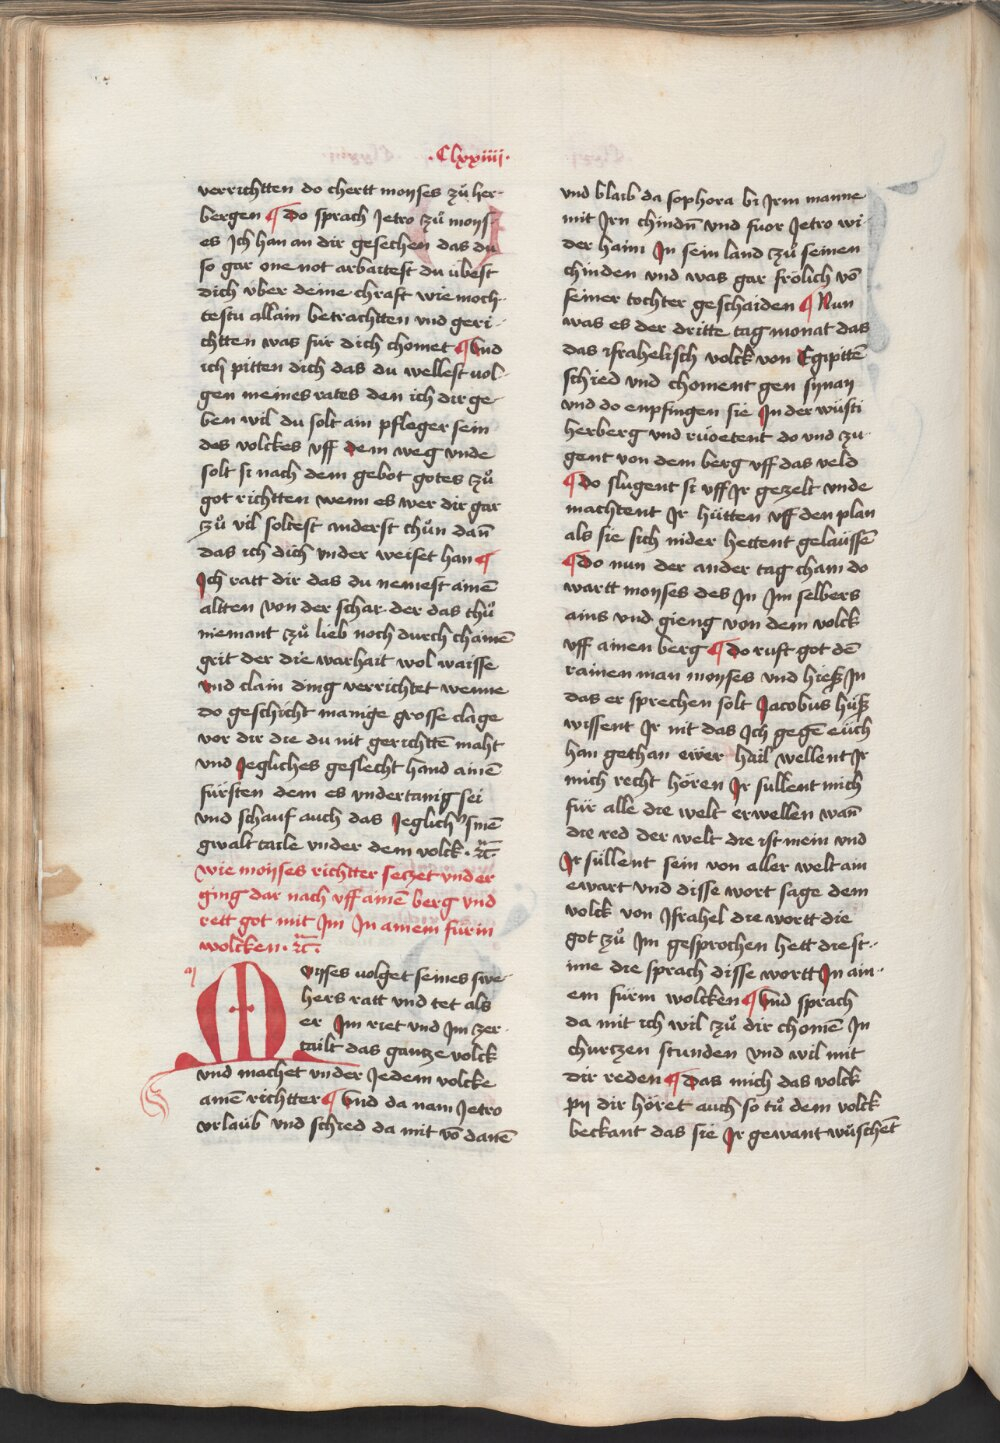 ·Clxxiiii·
verrichtten do chertt moyses zuͦ her-
bergen ¶ Do sprach Jetro zuͦ moys-
es Jch han an dir gesechen das du
so gar one not arbaitest du übest
dich vber deine chraft wie moch-
testu allain betrachtten vnd geri-
chtten was für dich chomet ¶ Vnd
ich pitten dich das du wellest uol-
gen meines rates den ich dir ge-
ben wil du solt ain pfleger sein
des volckes vff dem weg vnde
solt si nach dem gebot gotes zuͦ
got richtten wenn es wer dir gar
zuͦ vil soltest anderst thuͦn dan̄
das ich dich vnder weiset han ¶
Jch ratt dir das du nemest ainē
altten von der schar der das thuͦ
niemant zuͦ lieb noch durch chainē
grit der die warhait wol waisse
vnd clain ding verrichtet wenne
do geschicht manige grosse clage
vor dir die du nit gerichttē maht
vnd Jegliches geslecht hand ainē
fürsten dem es vndertanig sei
vnd schauf auch das Jeglichs sinē
gwalt taile vnder dem volck · ꝛc̄·
wie moyses richtter seczet vnd er
ging dar nach vff ainē berg vnd
rett got mit Jm Jn ainem fürin
wolcken · ꝛc̄·
Moyses uolget seines swe-
hers ratt vnd tet als
er Jm riet vnd Jm zer-
tailt das gantze volck
vnd machet vnder Jedem volcke
ainē richtter ¶ Vnd da nam Jetro
vrlaub vnd schied da mit vō danē
vnd blaib da sophora bi Jrm manne
mit Jrn chindn̄ vnd fuor Jetro wi-
der haim Jn sein land zuͦ seinen
chinden vnd was gar frölich vō
seiner tochter geschaiden ¶ Nun
was es der dritte tag monat das
das israhelisch volck von Egipttē
schied vnd choment gen synay
vnd do enpfingen sie Jn der wüsti
herberg vnd rüoetent do vnd zu-
gent von dem berg vff das veld
¶ Do slugent si vff Jr gezelt vnde
machtent Jr hütten vff den plan
als sie sich nider hettent gelaussē
¶ Do nun der ander tag cham do
wartt moyses des Jn Jm selbers
ains vnd gieng von dem volck
vff ainen berg ¶ Do ruft got dē
rainen man moyses vnd hieß Jn
das er sprechen solt Jacobus huß
wissent Jr nit das Jch gegē eüch
han gethan ewer hail wellent Jr
mich recht hören Jr süllent mich
für alle die welt erwellen wan̄
die red der welt die ist mein vnd
Jr süllent sein von aller welt ain
ewart vnd disse wort sage dem
volck von Jsrahel die wortt die
got zuͦ Jm gesprochen hett die st-
ime die sprach disse wortt Jn ain-
em fürin wolcken ¶ Vnd sprach
da mit ich wil zuͦ dir chomē Jn
churtzen stunden vnd wil mit
dir reden ¶ Das mich das volck
py dir höret auch so tuͦ dem volck
beckant das sie Jr gewant wüschēt